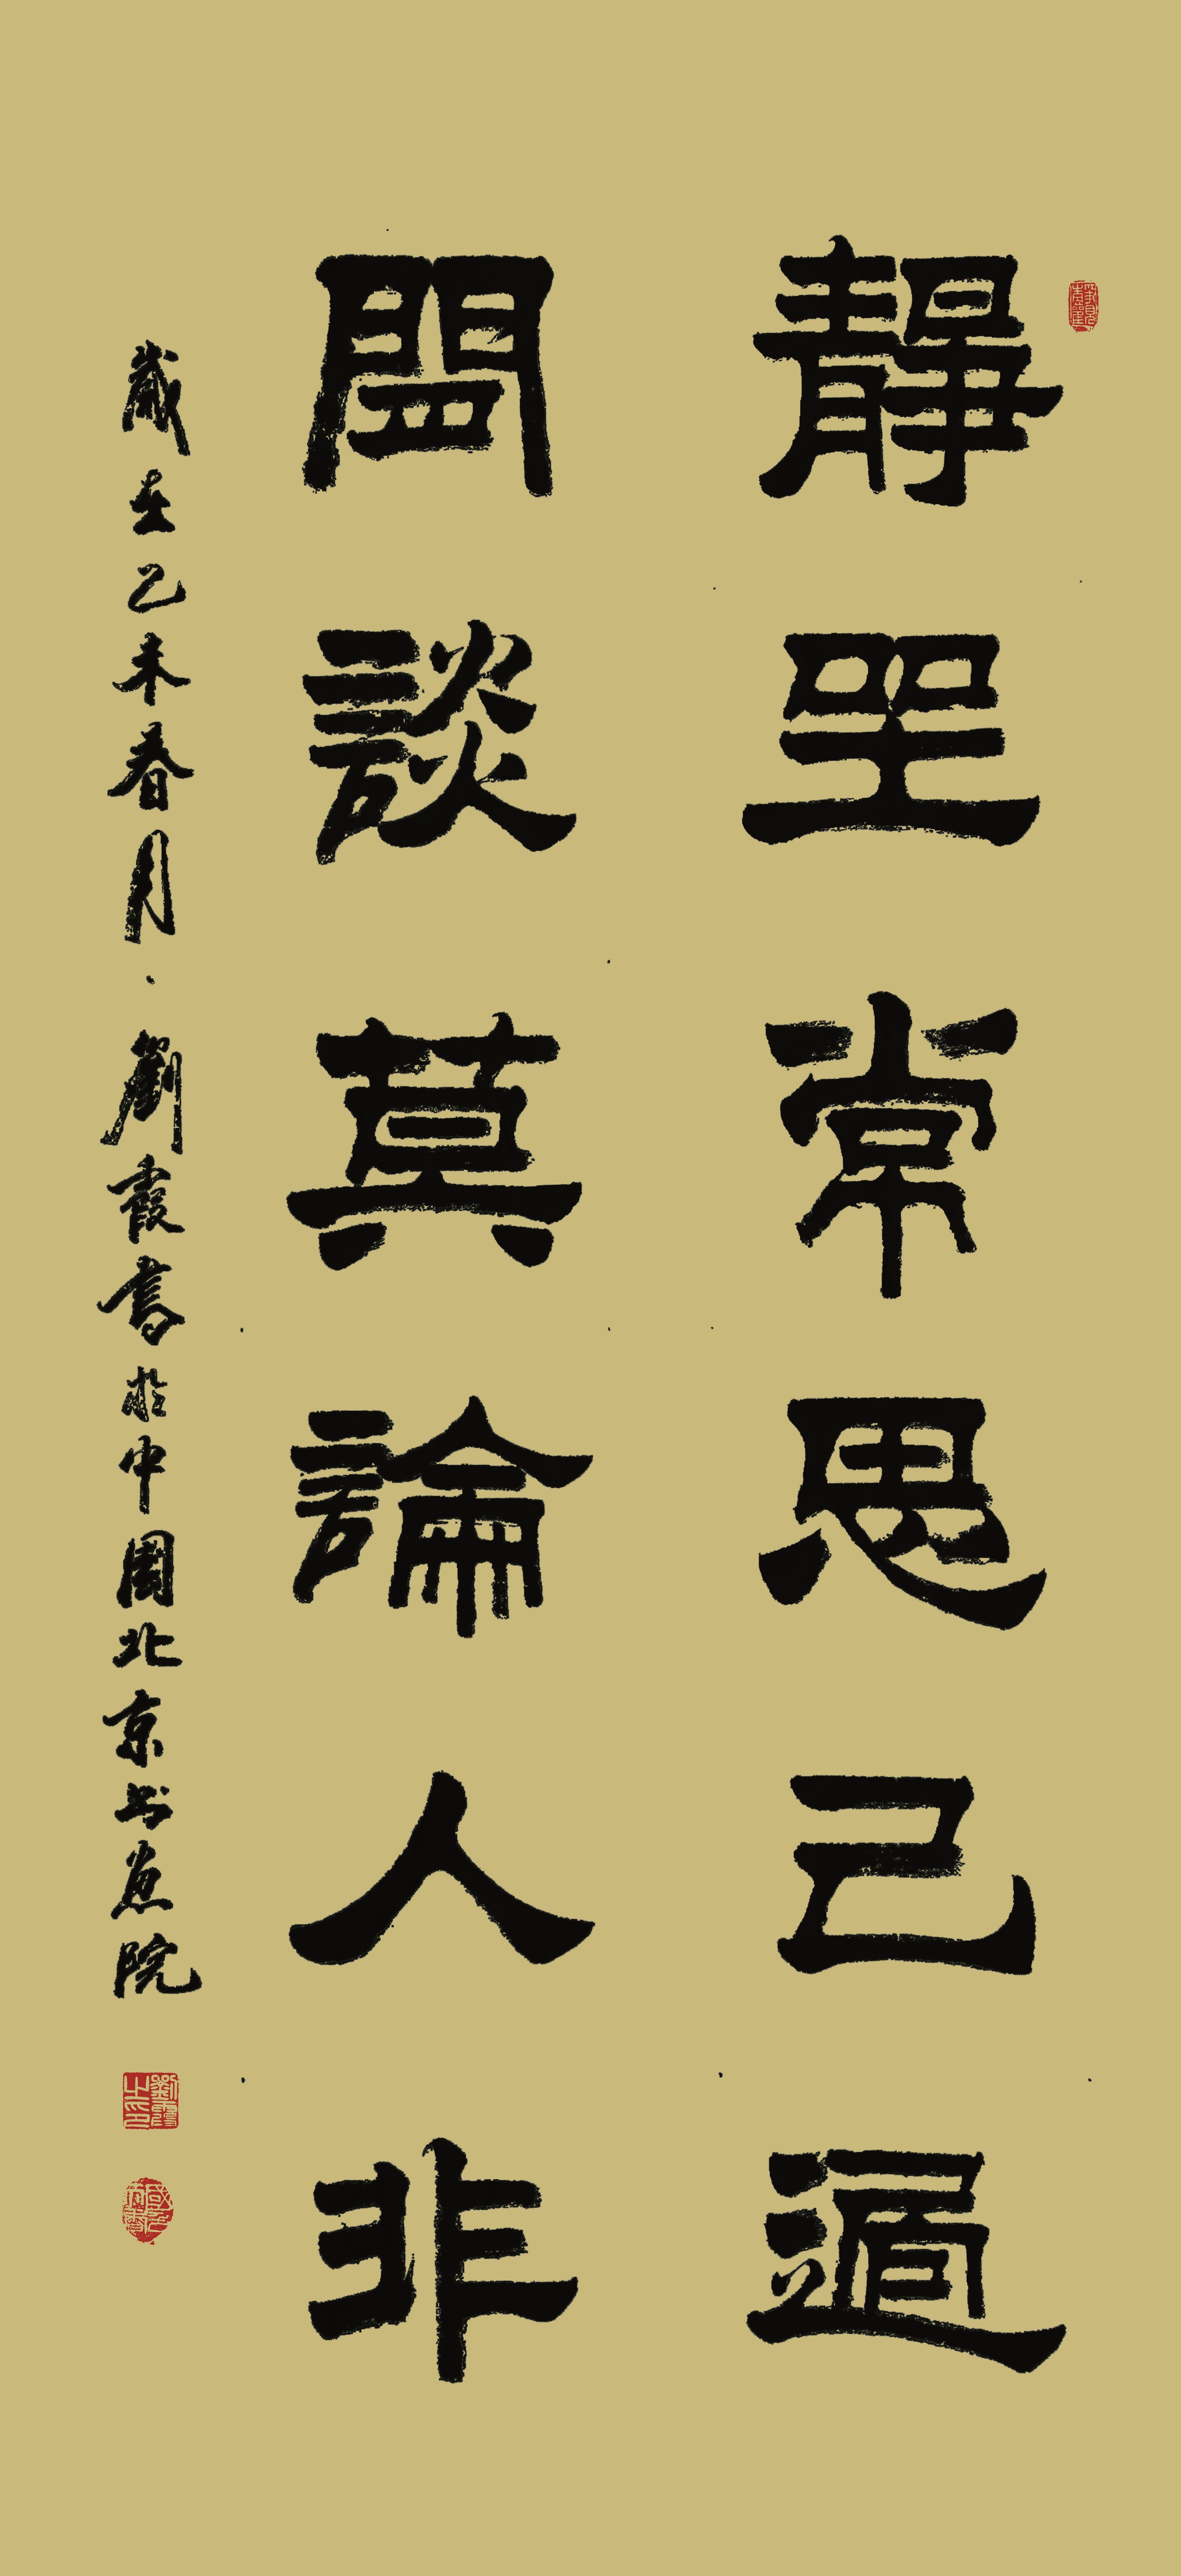 靜坐常思己過
閒談莫論人非
歲在乙未春月、劉霞書於中國北京书画院
劉霞之印